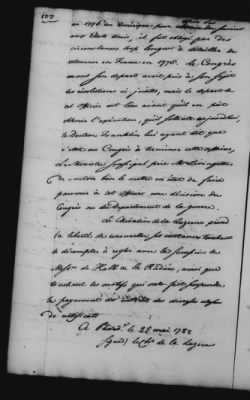 100
en 1776 en Amérique pour
aux Etats Unis, il fut obligé par des
circonstances trop longues à détailler de
retourner en France en 177 Le Congrès
avant son départ avoit pris à son sujet
les résolutions ci jointes, mais le départ de
cet officier eut lieu avant qu'on en pût
obtenir l'exécution,
le Docteur Franklin lui ayant dit que
c'étoit au Congrès à terminer cette affaire,
Le Ministre soussigné prie Mr
de vouloir bien le mettre en état de faire
parvenir à cet officier une décision du
Congrès ou du département de la guerre.
Le Chevalier de la Luzerne prend
la liberté de renouveller ses instances touchant
le décompte à régler avec les
Messrs de Kalb et la Radière, ainsi que
touchant les motifs qui ont fait suspendre
le payement des interêts des diverses
de certificats
A Philade. le 25 mai 1782
(signé) le Chr. de la Luzerne